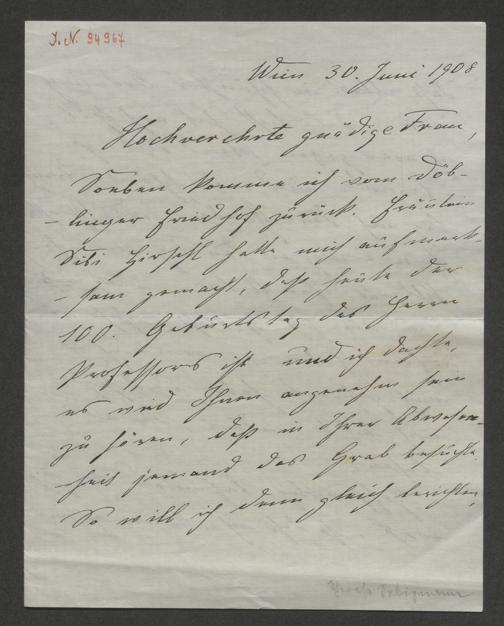 I. N. 94967
Wien 30. Juni 1908
Hochverehrte gnädige Frau,
Soeben komme ich vom Döb-
-linger Friedhof zurück. Fräulein
Hirschl hatte mich aufmerk-
-sam gemacht, daß heute der
100. Geburtstag des Herrn
Professors ist und ich dachte,
es wird Ihnen angenehm sein
zu hören, daß in Ihrer Abwesen-
heit jemand das Grab besuchte.
So will ich denn gleich berichten,